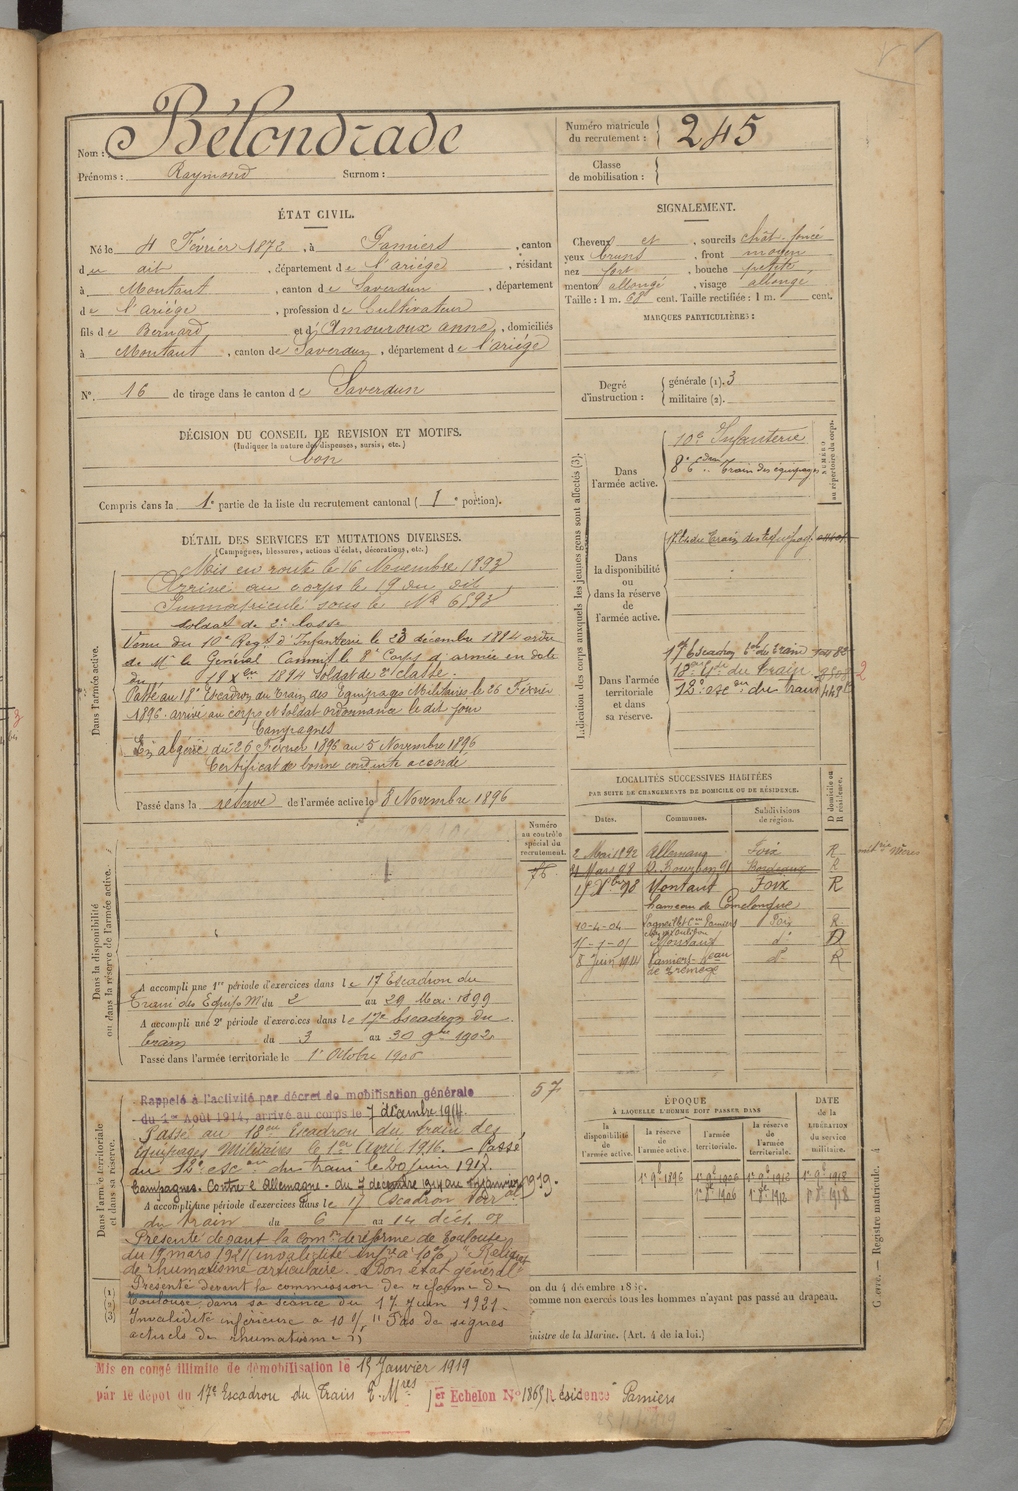 Nom : Bélondrade
Prénoms : Raymond Surnom :
Numéro matricule du recrutement : 245
Classe de mobilisation :
ÉTAT CIVIL.
Né le 4 Février 1872, à Pamiers, canton
du dit, département de l'ariége, résidant
à Montaut, canton de Saverdun, département
de l'ariége, profession de Cultivateur
fils de Bernard et d' Amouroux anne, domiciliés
à Montaut, canton de Saverdun, département de l'ariége
N° 16 de tirage dans le canton de Saverdun
DÉCISION DU CONSEIL DE REVISION ET MOTIFS.
(Indiquer la nature des dispenses, sursis, etc.)
bon
Compris dans la 1e partie de la liste du recrutement cantonal (1e portion).
SIGNALEMENT.
Cheveux et, sourcils chât. foncé
yeux bruns, front moyen
nez fort, bouche petite
menton allongé, visage allongé
Taille : 1 m. 68 cent. Taille rectifiée : 1 m. cent.
MARQUES PARTICULIÈRES :
Degré d'instruction : générale (1). 3
militaire (2).
DÉTAIL DES SERVICES ET MUTATIONS DIVERSES.
(Campagnes, blessures, actions d'éclat, décorations, etc.)
Dans l'armée active.
Mis en route le 16 Novembre 1893
Arrivé au corps le 19 du dit
Immatriculé sous le No 6593
soldat de 2e classe
Venu du 10e Régt d'Infanterie le 23 décembre 1894 ordre
de Mr le Général Commt le 8e Corps d'armée en date
du 19 Xbre 1894 Soldat de 2e classe.
Passé au 18e Escadron du Train des Equipages Militaires le 26 Février
1896. arrivé au corps et soldat ordonnance le dit jour
Campagnes
En algérie du 26 Février 1896 au 5 Novembre 1896
Certificat de bonne conduite accordé
Passé dans la réserve de l'armée active le 8 Novembre 1896
Indication des corps auxquels les jeunes gens sont affectés (3).
NUMÉRO au répertoire du corps.
Dans l'armée active.
10e Infanterie
8e Edron Train des équipages
Dans la disponibilité ou dans la réserve de l'armée active.
Dans l'armée territoriale et dans sa réserve.
17e Escadron du Train
12e escon du train
LOCALITÉS SUCCESSIVES HABITÉES
PAR SUITE DE CHANGEMENTS DE DOMICILE OU DE RÉSIDENCE.
Dates. Communes. Subdivisions de région. D domicile ou R résidence.
2 Mai 1892 Allemans Foix R
21 Mars 98 R. Bouquen 91 Bordeaux R
19 Xbre 98 Montaut Foix R
hameau de
10-4-04 Pamiers Foix R
15-1-05 Montaut do D
8 Juin 1914 Pamiers do R
Numéro au contrôle spécial du recrutement.
76
Dans la disponibilité ou dans la réserve de l'armée active.
A accompli une 1re période d'exercices dans le 17 Escadron du
Train des Equip. Mres du 2 au 29 Mai 1899
A accompli une 2e période d'exercices dans le 17e Escadron du
train du 3 au 30 9bre 1902
Passé dans l'armée territoriale le 1er Octobre 1906
57
Dans l'armée territoriale et dans sa réserve.
Rappelé à l'activité par décret de mobilisation générale
du 1er Août 1914, arrivé au corps le 7 décembre 1914.
Passé au 18eme Escadron du train des
équipages Militaires le 1er Avril 1916. Passé
au 12e escon du train le 20 juin 1917.
Campagnes. Contre l'Allemagne. du 7 décembre 1914 au janvier 1919.
A accompli une période d'exercices dans le 17 Escadron Terral
du train du 6 au 14 déct. 08
Présenté devant la Comon de réforme de Toulouse
du 19 mars 1921 (invalidité infre à 10%) "Reliquat
de rhumatisme articulaire. Bon état général"
Présenté devant la commission de réforme de
Toulouse, dans sa séance du 17 Juin 1921.
Invalidité inférieure à 10% "Pas de signes
actuels de rhumatisme"
ÉPOQUE
À LAQUELLE L'HOMME DOIT PASSER DANS
DATE de la LIBÉRATION du service militaire.
la disponibilité de l'armée active. la réserve de l'armée active. l'armée territoriale. la réserve de l'armée territoriale.
1er 9e 1896 1er 9e 1906 1er 9e 1912 1er 9e 1918
1er 8e 1906 1er 8e 1912 1er 8e 1918
(1)
(2)
(3)
comme non exercés tous les hommes n'ayant pas passé au drapeau.
ministre de la Marine. (Art. 4 de la loi.)
Registre matricule.
Mis en congé illimité de démobilisation le 15 Janvier 1919
par le dépôt du 17e Escadron du Train E. Mres 1er Echelon No 1865 Résidence Pamiers